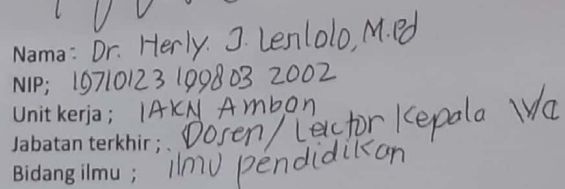 Nama: Dr. Herly. J. Lenlolo, M.Pd
NIP; 19710123 199803 2002
Unit kerja ; IAKN Ambon
Jabatan terkhir ;. Dosen/Lector Kepala IV/a
Bidang ilmu ; ilmu pendidikan